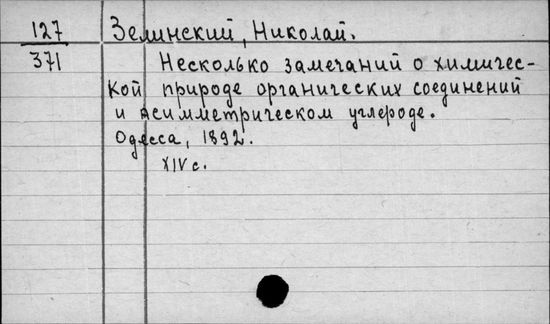 127 Зелинский, Николай.
371 Несколько замечаний о химичес-
кой природе органических соединений
и асимметрическом углероде.
Одесса, 1892.
XIV с.